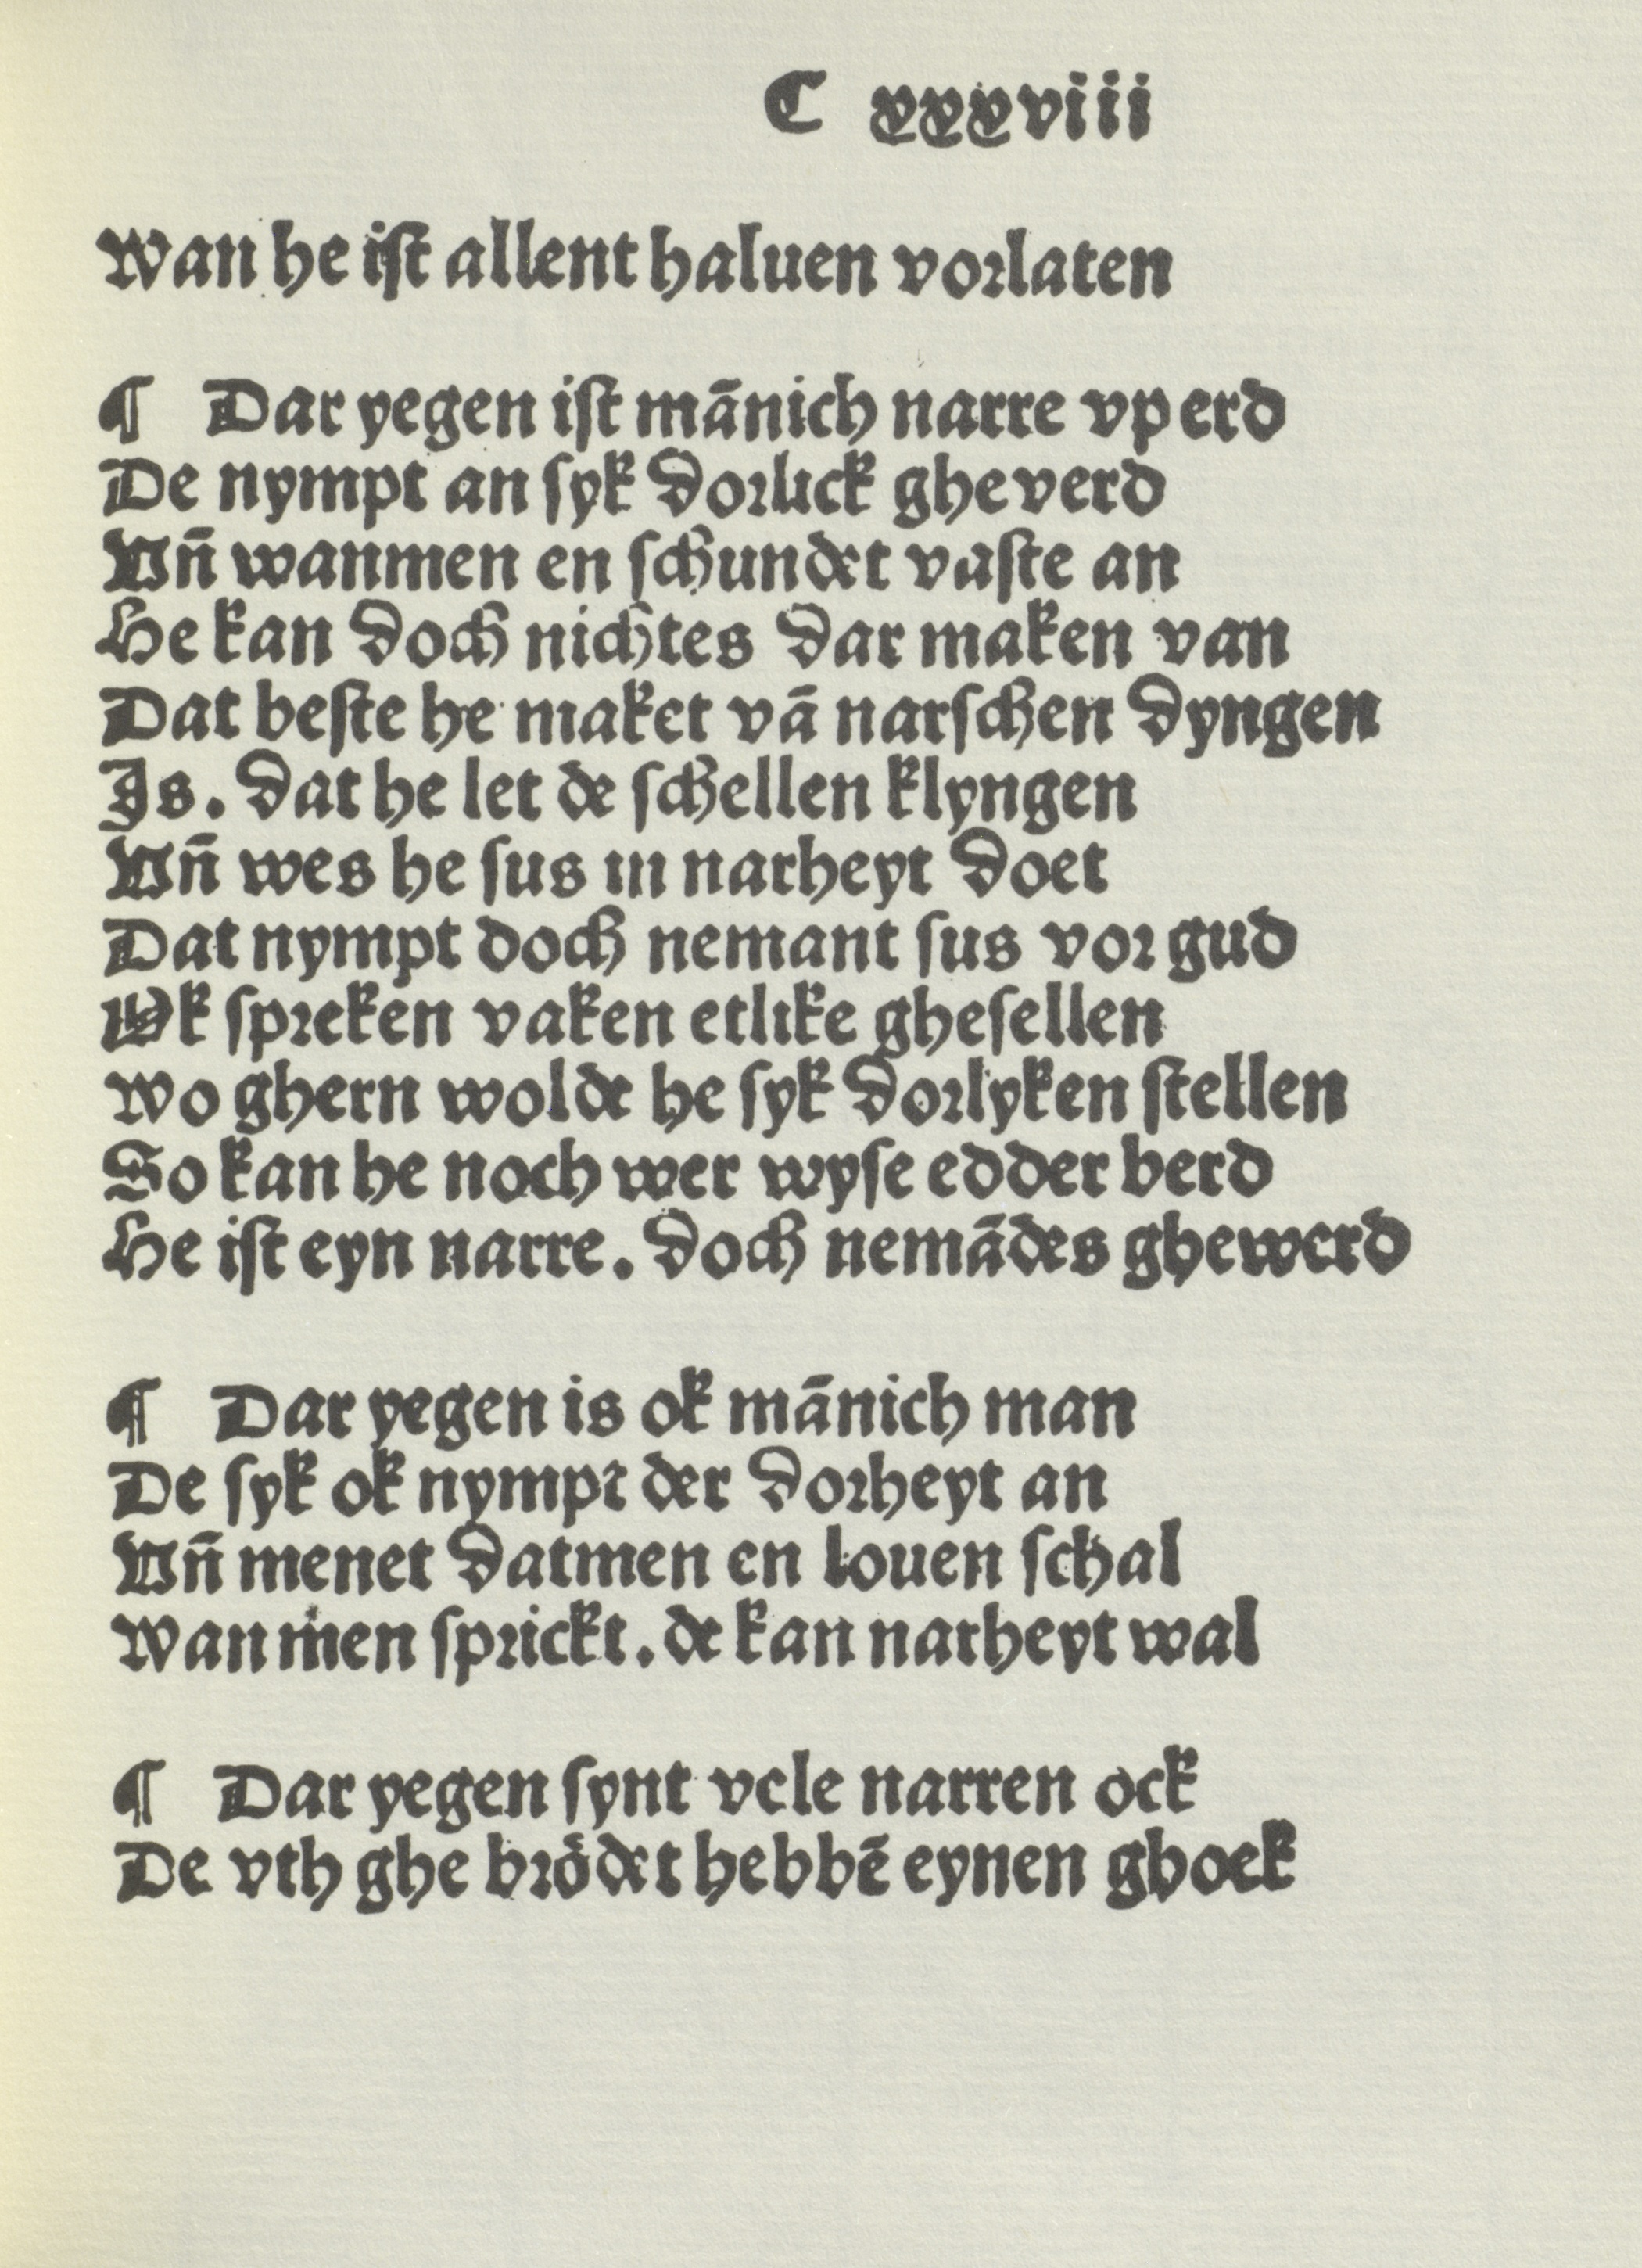 C xxxviii
Wan he iſt allent haluen vorlaten
¶ Dar yegen iſt mānich narre vp erd
De nympt an ſyk dorlick gheverd
Vn̄ wanmen en ſchundet vaſte an
He kan doch nichtes dar maken van
Dat beſte he maket vā narſchen dyngen
Js. dat he let de ſchellen klyngen
Vn̄ wes he ſus in narheyt doet
Dat nympt doch nemant ſus vor gud
Ok ſpreken vaken etlike gheſellen
Wo ghern wolde he ſyk dorlyken ſtellen
So kan he noch wer wyſe edder berd
He iſt eyn narre. doch nemādes ghewerd
¶ Dar yegen is ok mānich man
De ſyk ok nympt der dorheyt an
Vn̄ menet datmen en louen ſchal
Wan men ſprickt. de kan narheyt wal
¶ Dar yegen ſynt vele narren ock
De vth ghe brödet hebbē eynen ghoek